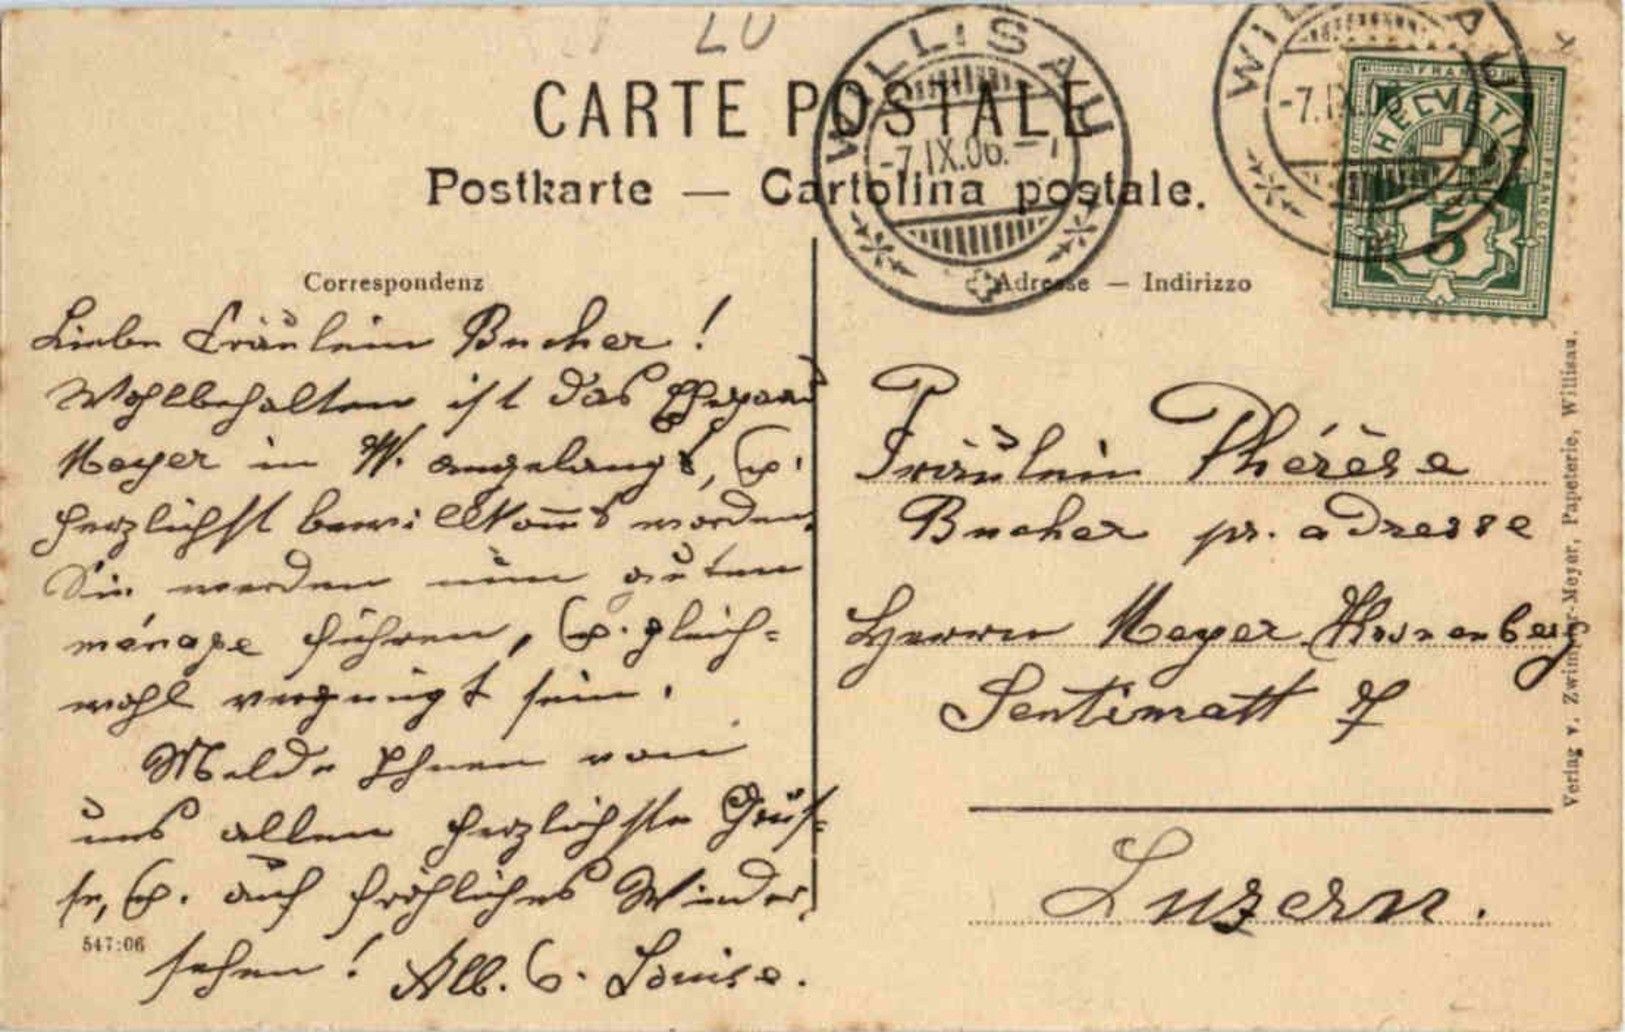 LU
CARTE POSTALE
Postkarte — Cartolina postale.
WILLISAU
-7.IX.06.-
WILLISAU
-7.IX.06
FRANCO
HELVETIA
5
FRANCO
Correspondenz
Adresse — Indirizzo
Liebe Fräulein Bucher!
Wohlbehalten ist das Ehepaar
Meyer in W. angelangt, u.
herzlichst bewillkomt worden.
Sie werden nun guten
ménage führen, u. gleich=
wohl vergnügt sein.
Melde Ihnen von
uns allen herzlichste Grüs=
se, u. auf fröhliches Wieder
sehen! Alb. u. Louise.
547:06
Fräulein Thérèse
Bucher pr. adresse
Herrn Meyer
Sentimatt 7
Luzern.
Verlag v. Zwimpfer-Meyer, Papeterie, Willisau.